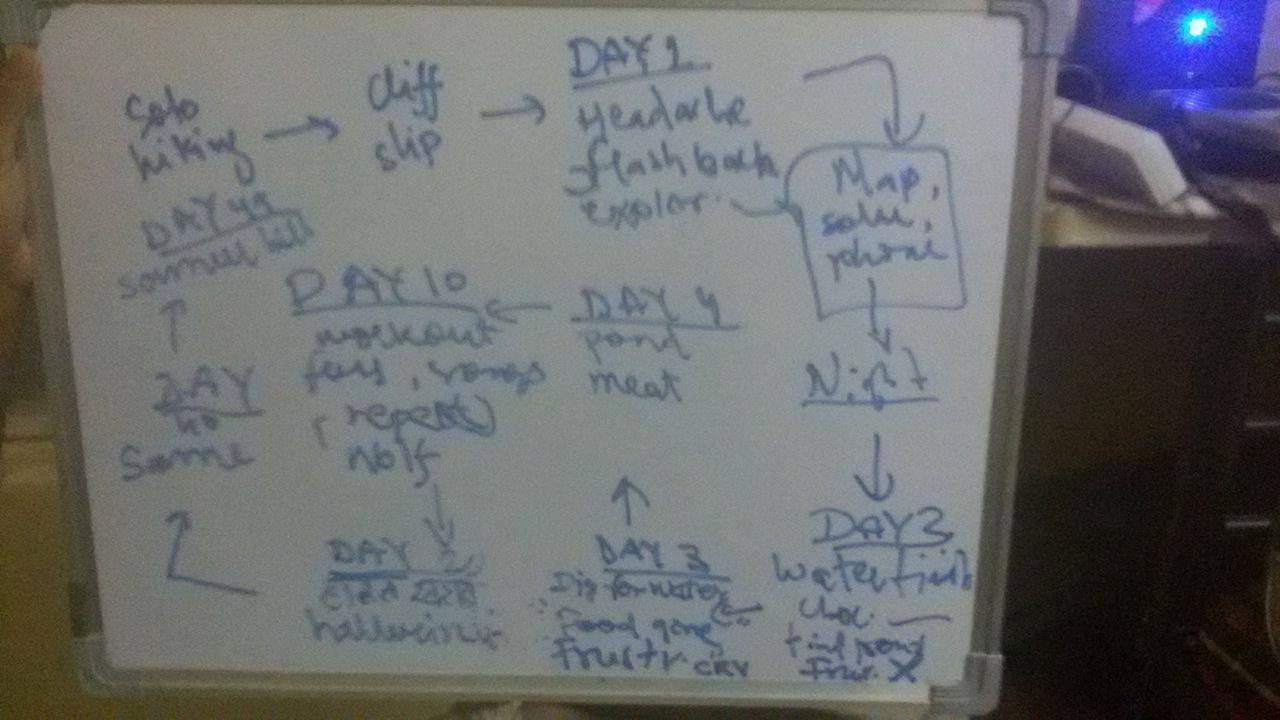 solo
hiking
cliff
slip
DAY 1
Headache
flashback
explor.
Map,
phone
Night
DAY 3
water finish
choc.
find pond
X
DAY 3
Dig for water
Food gone
frustr. cry
DAY 4
pond
meat
DAY 10
workout
songs
repeat
Wolf
DAY
hallucinis
DAY
40
Same
DAY 49